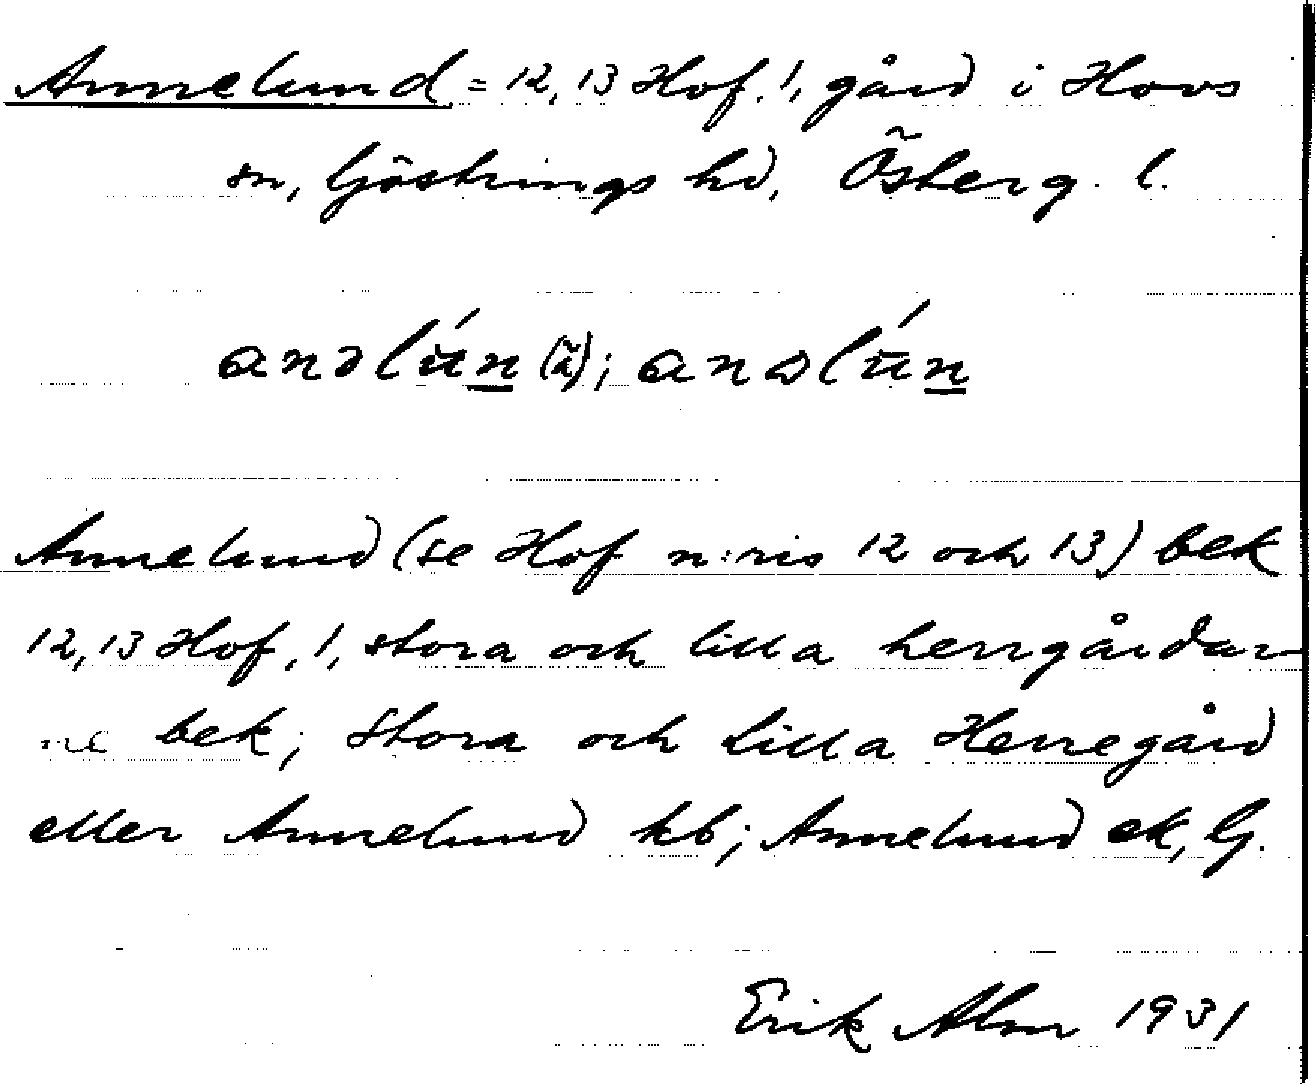 Annelund = 12, 13 Hof, 1, gård i Hovs
sn, Göstrings hd, Österg. l.
anəlún (ũ); anəlún
Annelund (se Hof n:ris 12 och 13) bek
12, 13 Hof, 1, stora och lilla herrgårdar-
ne bek; Stora och Lilla Herregård
eller Annelund kb; Annelund ek, G.
Erik Alm 1931